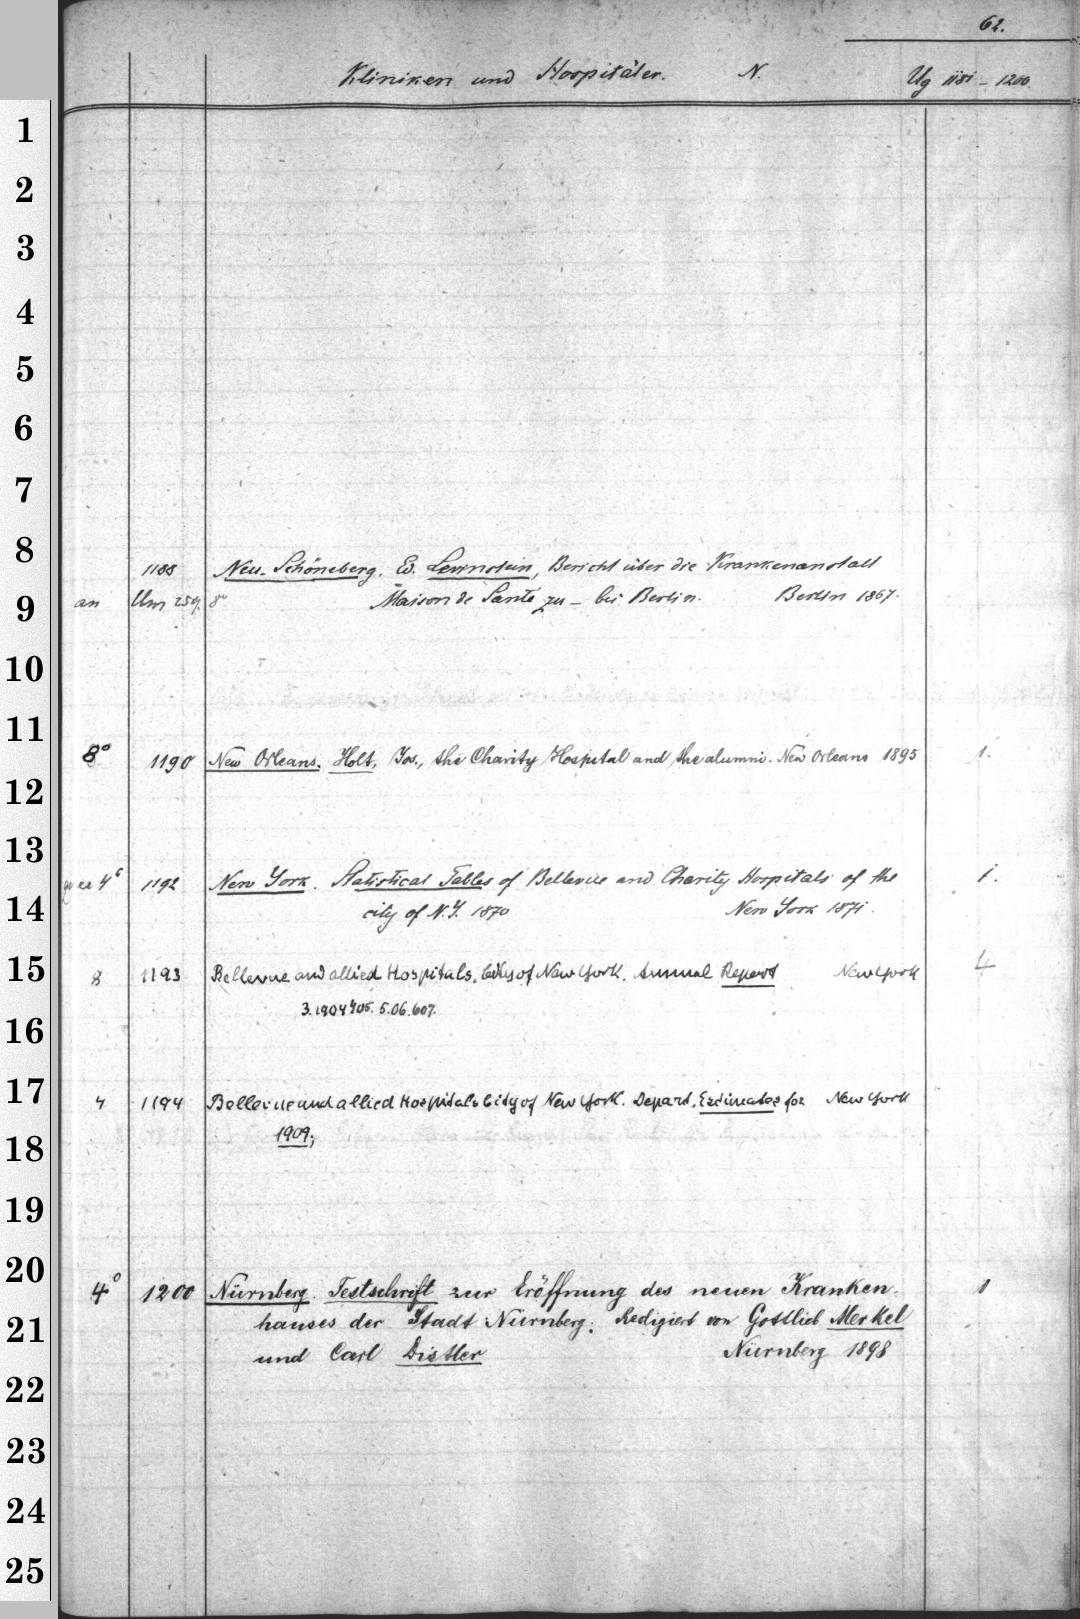 62.
Kliniken und Hospitäler. N. Ug 1181 - 1200.
1
2
3
4
5
6
7
8
1188 Neu-Schöneberg. Ed. Levinstein, Bericht über die Krankenanstalt
9
an Um 259. 8° Maison de Santé zu - bei Berlin. Berlin 1867.
10
11
8° 1190 New Orleans. Holt, Jos., the Charity Hospital and the alumni. New Orleans 1895 1.
12
13
4° 1192 New York. Statistical Tables of Bellevue and Charity Hospitals of the 1.
14
city of N.Y. 1870 New York 1871.
15
8 1193 Bellevue and allied Hospitals. City of New York. Annual Report New York 4
3. 1904 4 05. 5. 06. 6 07.
16
17
4 1194 Bellevue and allied Hospitals City of New York. Depart. Estimates for New York
18
1909;
19
20
4° 1200 Nürnberg. Festschrift zur Eröffnung des neuen Kranken- 1
21
hauses der Stadt Nürnberg. Redigiert von Gottlieb Merkel
und Carl Distler Nürnberg 1898
22
23
24
25